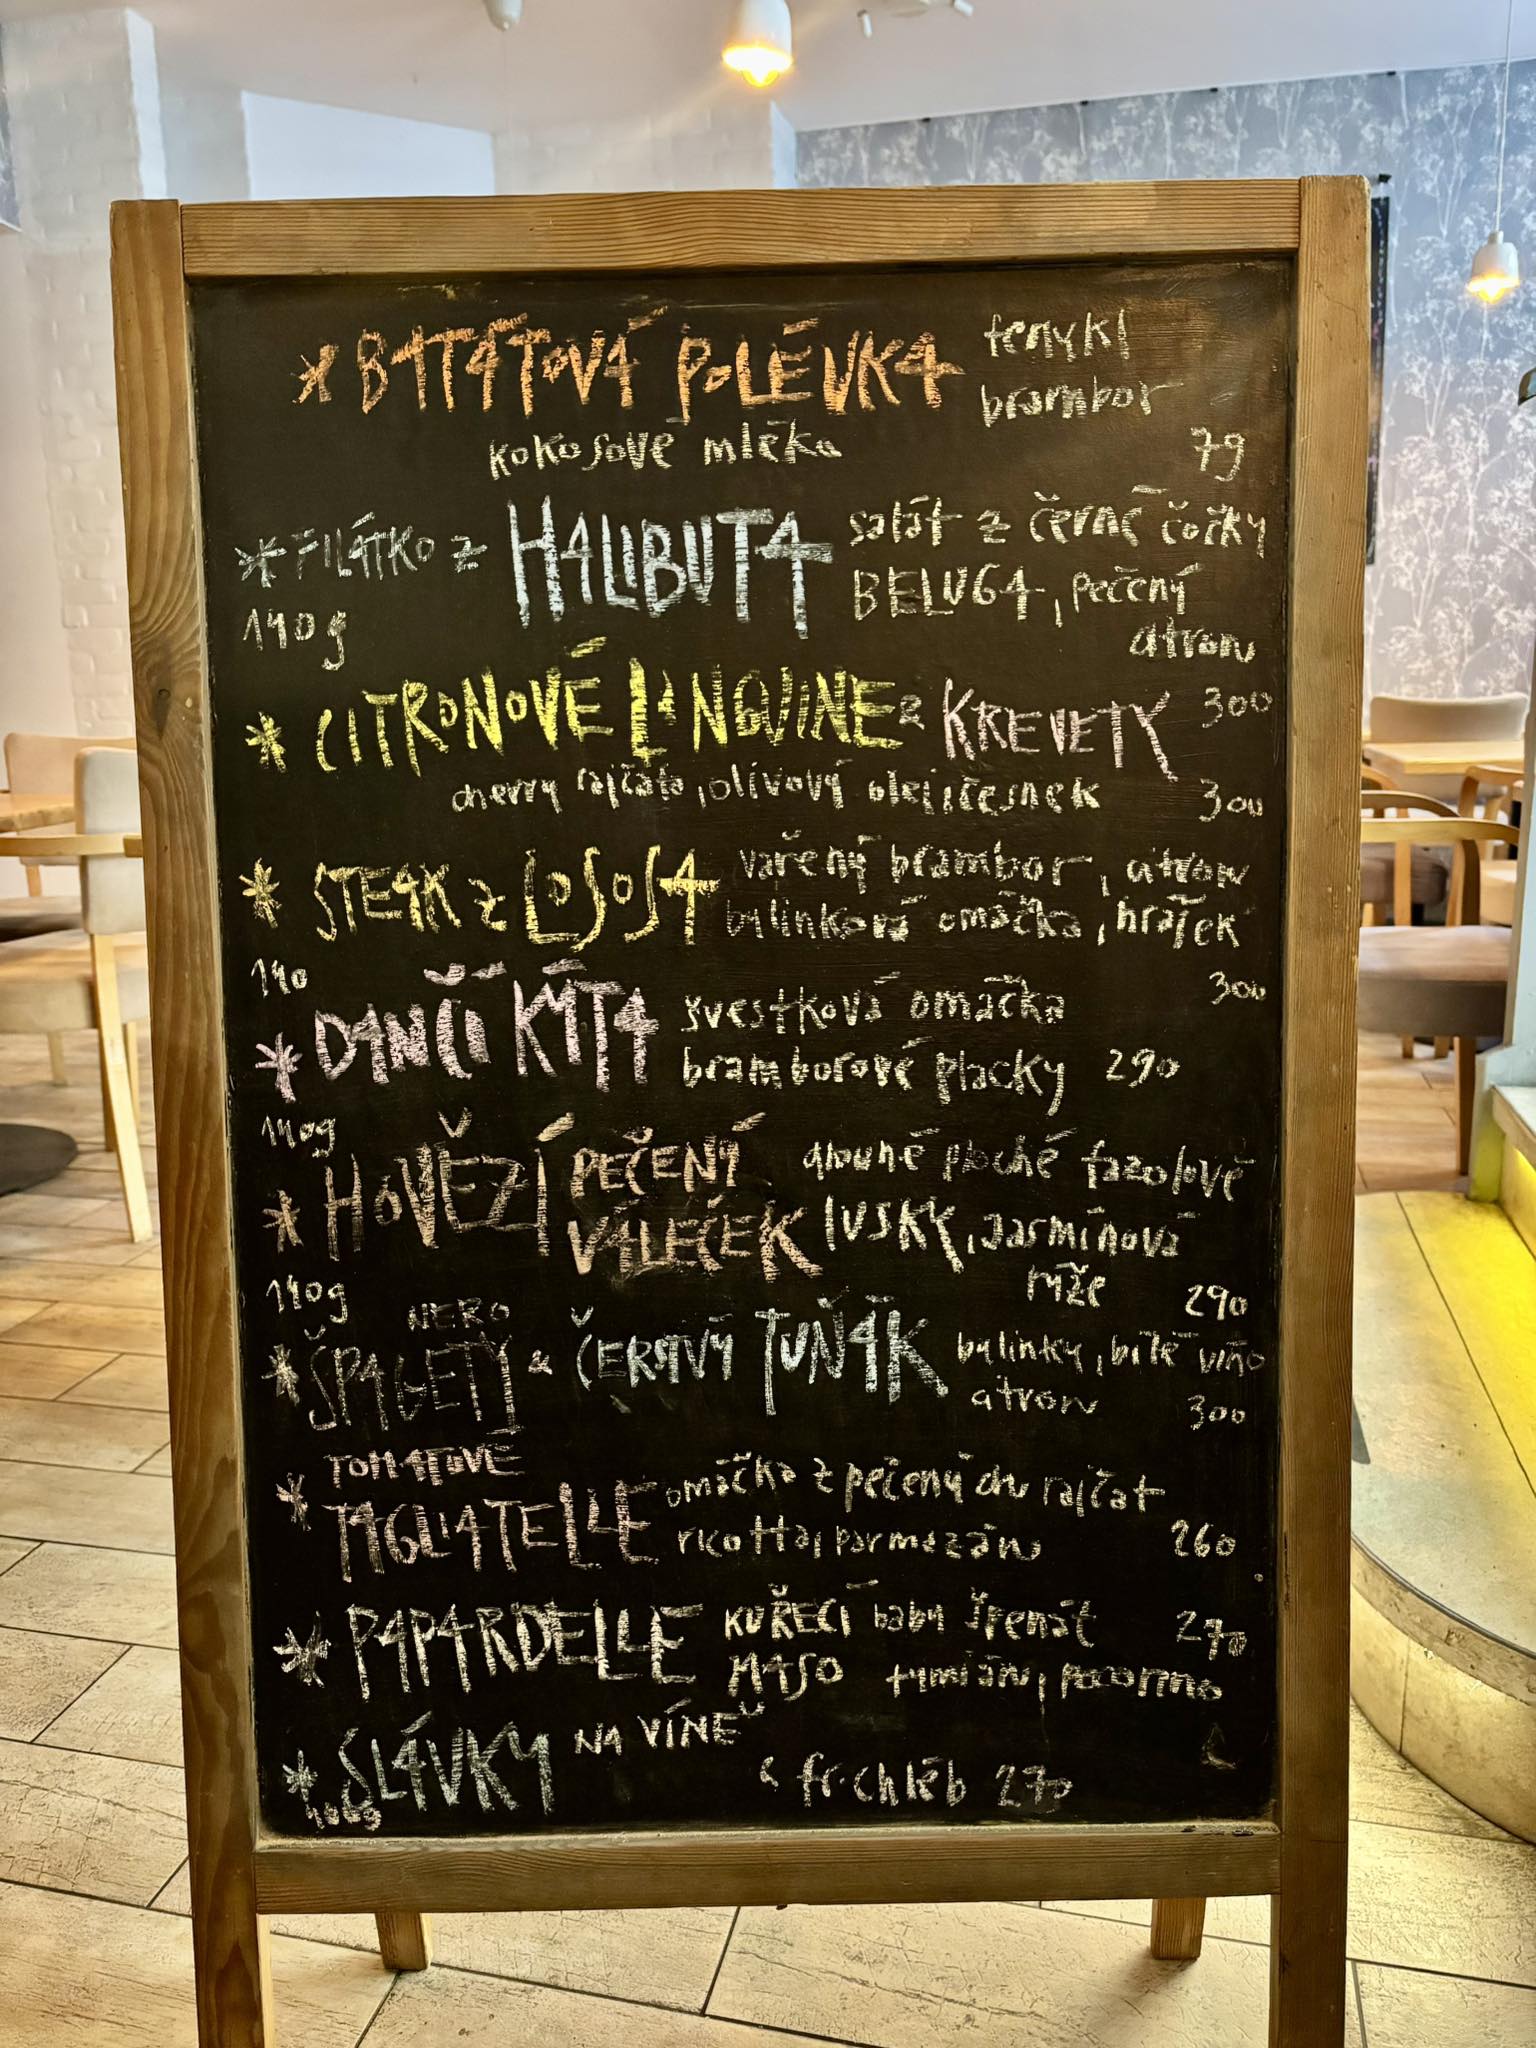 * BATÁTOVÁ POLÉVKA fenykl
brambor
kokosové mléko 79
* FILÁTKO z HALIBUTA salát z černé čočky
BELUGA, pečený
140g citron
300
* CITRONOVÉ LINGUINE & KREVETY
cherry rajčata, olivový olej, česnek 300
* STEAK z LOSOSA vařený brambor, citron
bylinková omáčka, hrášek
140 300
* DANČÍ KÝTA švestková omáčka
bramborové placky 290
140g
* HOVĚZÍ PEČENÝ VÁLEČEK dlouhé ploché fazolové
lusky, jasmínová
rýže 290
140g
NERO
* ŠPAGETY & ČERSTVÝ TUŇÁK bylinky, bílé víno
citron 300
TOMATOVÉ
* TAGLIATELLE omáčka z pečených rajčat
ricotta, parmazán 260
* PAPARDELLE KUŘECÍ baby špenát 270
MASO tymián, pecorino
* SLÁVKY NA VÍNĚ
400g & fr. chléb 270